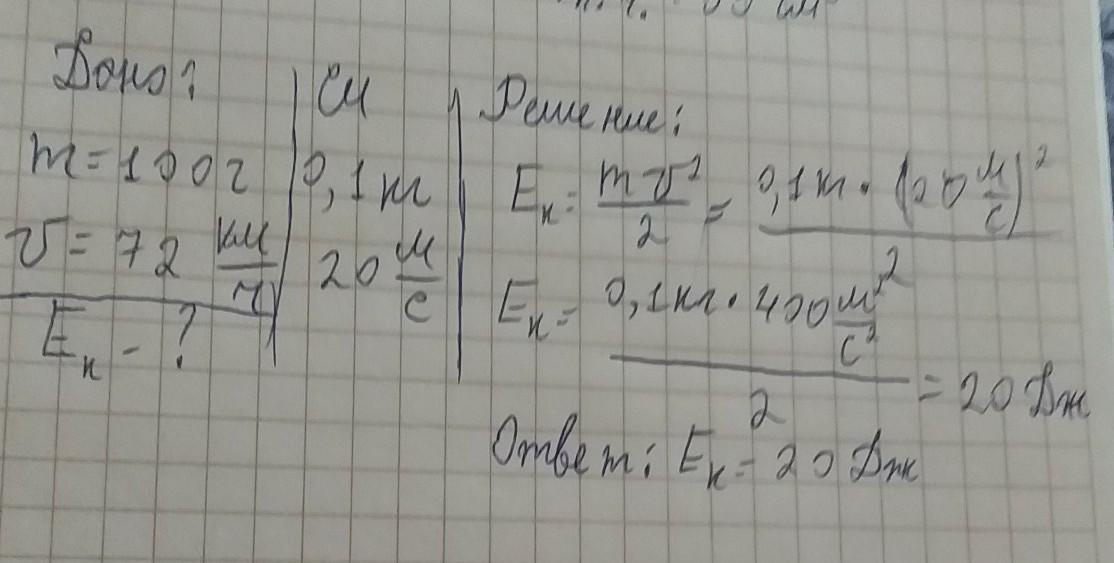 Дано:
m=100г
v=72 км/ч
Eк - ?
СИ
0,1кг
20 м/с
Решение:
Eк = mv²/2 = 0,1кг·(20 м/с)²
Eк = 0,1кг·400 м²/с² / 2 = 20 Дж
Ответ: Eк = 20 Дж